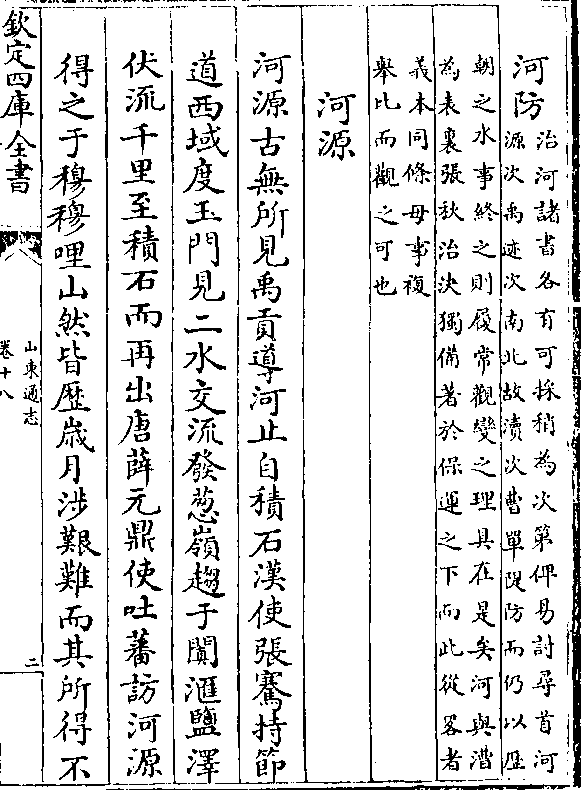 河防
治河諸書各有可採稍為次第俾易討尋首河
源次禹迹次南北故瀆次曹單隄防而仍以歷
朝之水事終之則履常觀變之理具在是矣河與漕
為表裏張秋治決獨備著於保運之下而此從畧者
義本同條毋事複
舉比而觀之可也
河源
河源古無所見禹貢導河止自積石漢使張騫持節
道西域度玉門見二水交流發葱嶺趨于闐滙鹽澤
伏流千里至積石而再出唐薛元鼎使吐蕃訪河源
得之于穆穆哩山然皆歴歲月涉艱難而其所得不
欽定四庫全書
山東通志
卷十八
二